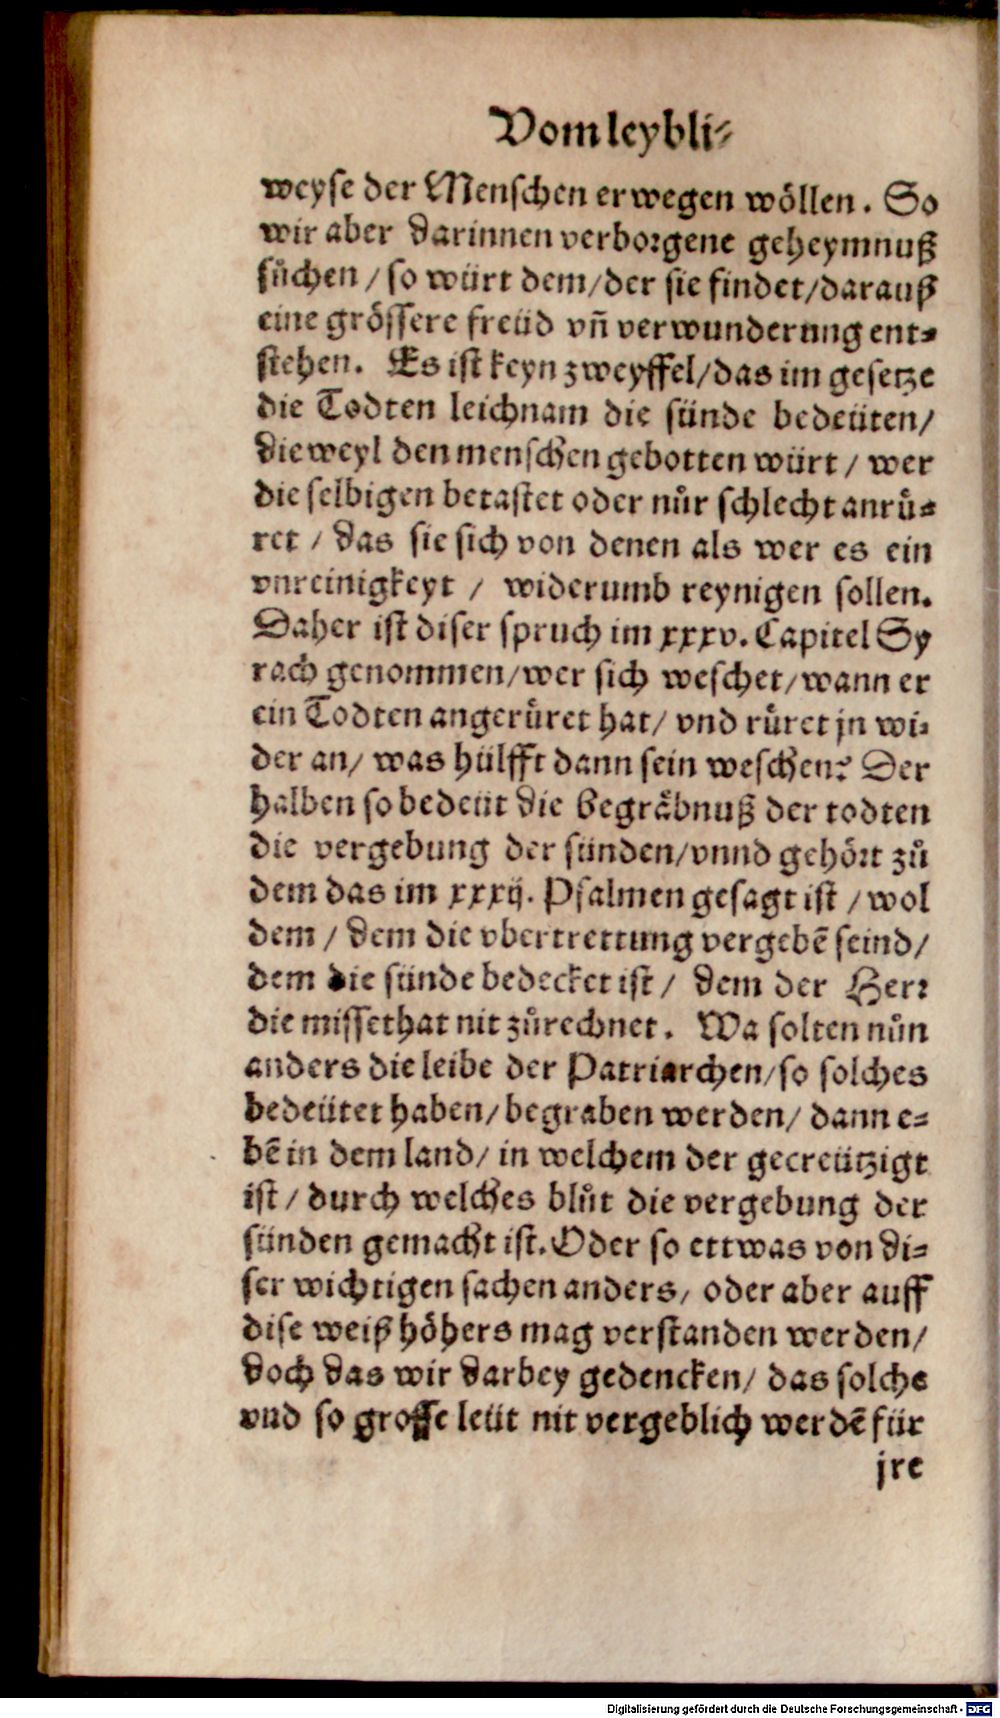 Vom leybli⸗
weyse der Menschen erwegen wöllen. So
wir aber darinnen verborgene geheymnuß
sůchen / so würt dem/der sie findet/darauß
eine grössere freüd vñ verwunderung ent⸗
stehen. Es ist keyn zweyffel/das im gesetze
die Todten leichnam die sünde bedeüten/
die weyl den menschen gebotten würt / wer
die selbigen betastet oder nůr schlecht anrů⸗
ret / das sie sich von denen als wer es ein
vnreinigkeyt / widerumb reynigen sollen.
Daher ist diser spruch im xxxv. Capitel Sy
rach genommen/wer sich weschet/wann er
ein Todten angerůret hat/ vnd růret jn wi⸗
der an/ was hülfft dann sein weschen? Der
halben so bedeüt die begräbnuß der todten
die vergebung der sünden/vnnd gehört zů
dem das im xxxij. Psalmen gesagt ist / wol
dem / dem die vbertrettung vergebē seind/
dem die sünde bedecket ist / dem der Herr
die missethat nit zůrechnet. Wa solten nůn
anders die leibe der Patriarchen/so solches
bedeütet haben/begraben werden/ dann e⸗
bē in dem land/ in welchem der gecreützigt
ist / durch welches blůt die vergebung der
sünden gemacht ist. Oder so ettwas von di⸗
ser wichtigen sachen anders, oder aber auff
dise weiß höhers mag verstanden werden/
doch das wir darbey gedencken/ das solche
vnd so grosse leüt nit vergeblich werdē für
jre
Digitalisierung gefördert durch die Deutsche Forschungsgemeinschaft - DFG